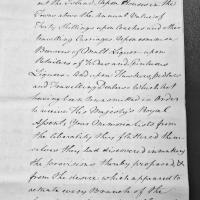 out the Island, Upon Houses or the
Tenure above the Annual Value of
Forty Shillings upon Coaches and other
travelling Carriages Upon common
Brewers of Malt Liquor upon
Retailers of Wines and Spirituous
Liquors And upon Hawkers, pedlars
and Travelling Dealers Which Act
having been transmitted in Order
to receive His Majesty's Royal
Assent, Your Memorialists from
the liberality they flattered them
selves they had discovered in making
the provisions thereby proposed, &
from the desire which appeared to
actuate every Branch of the